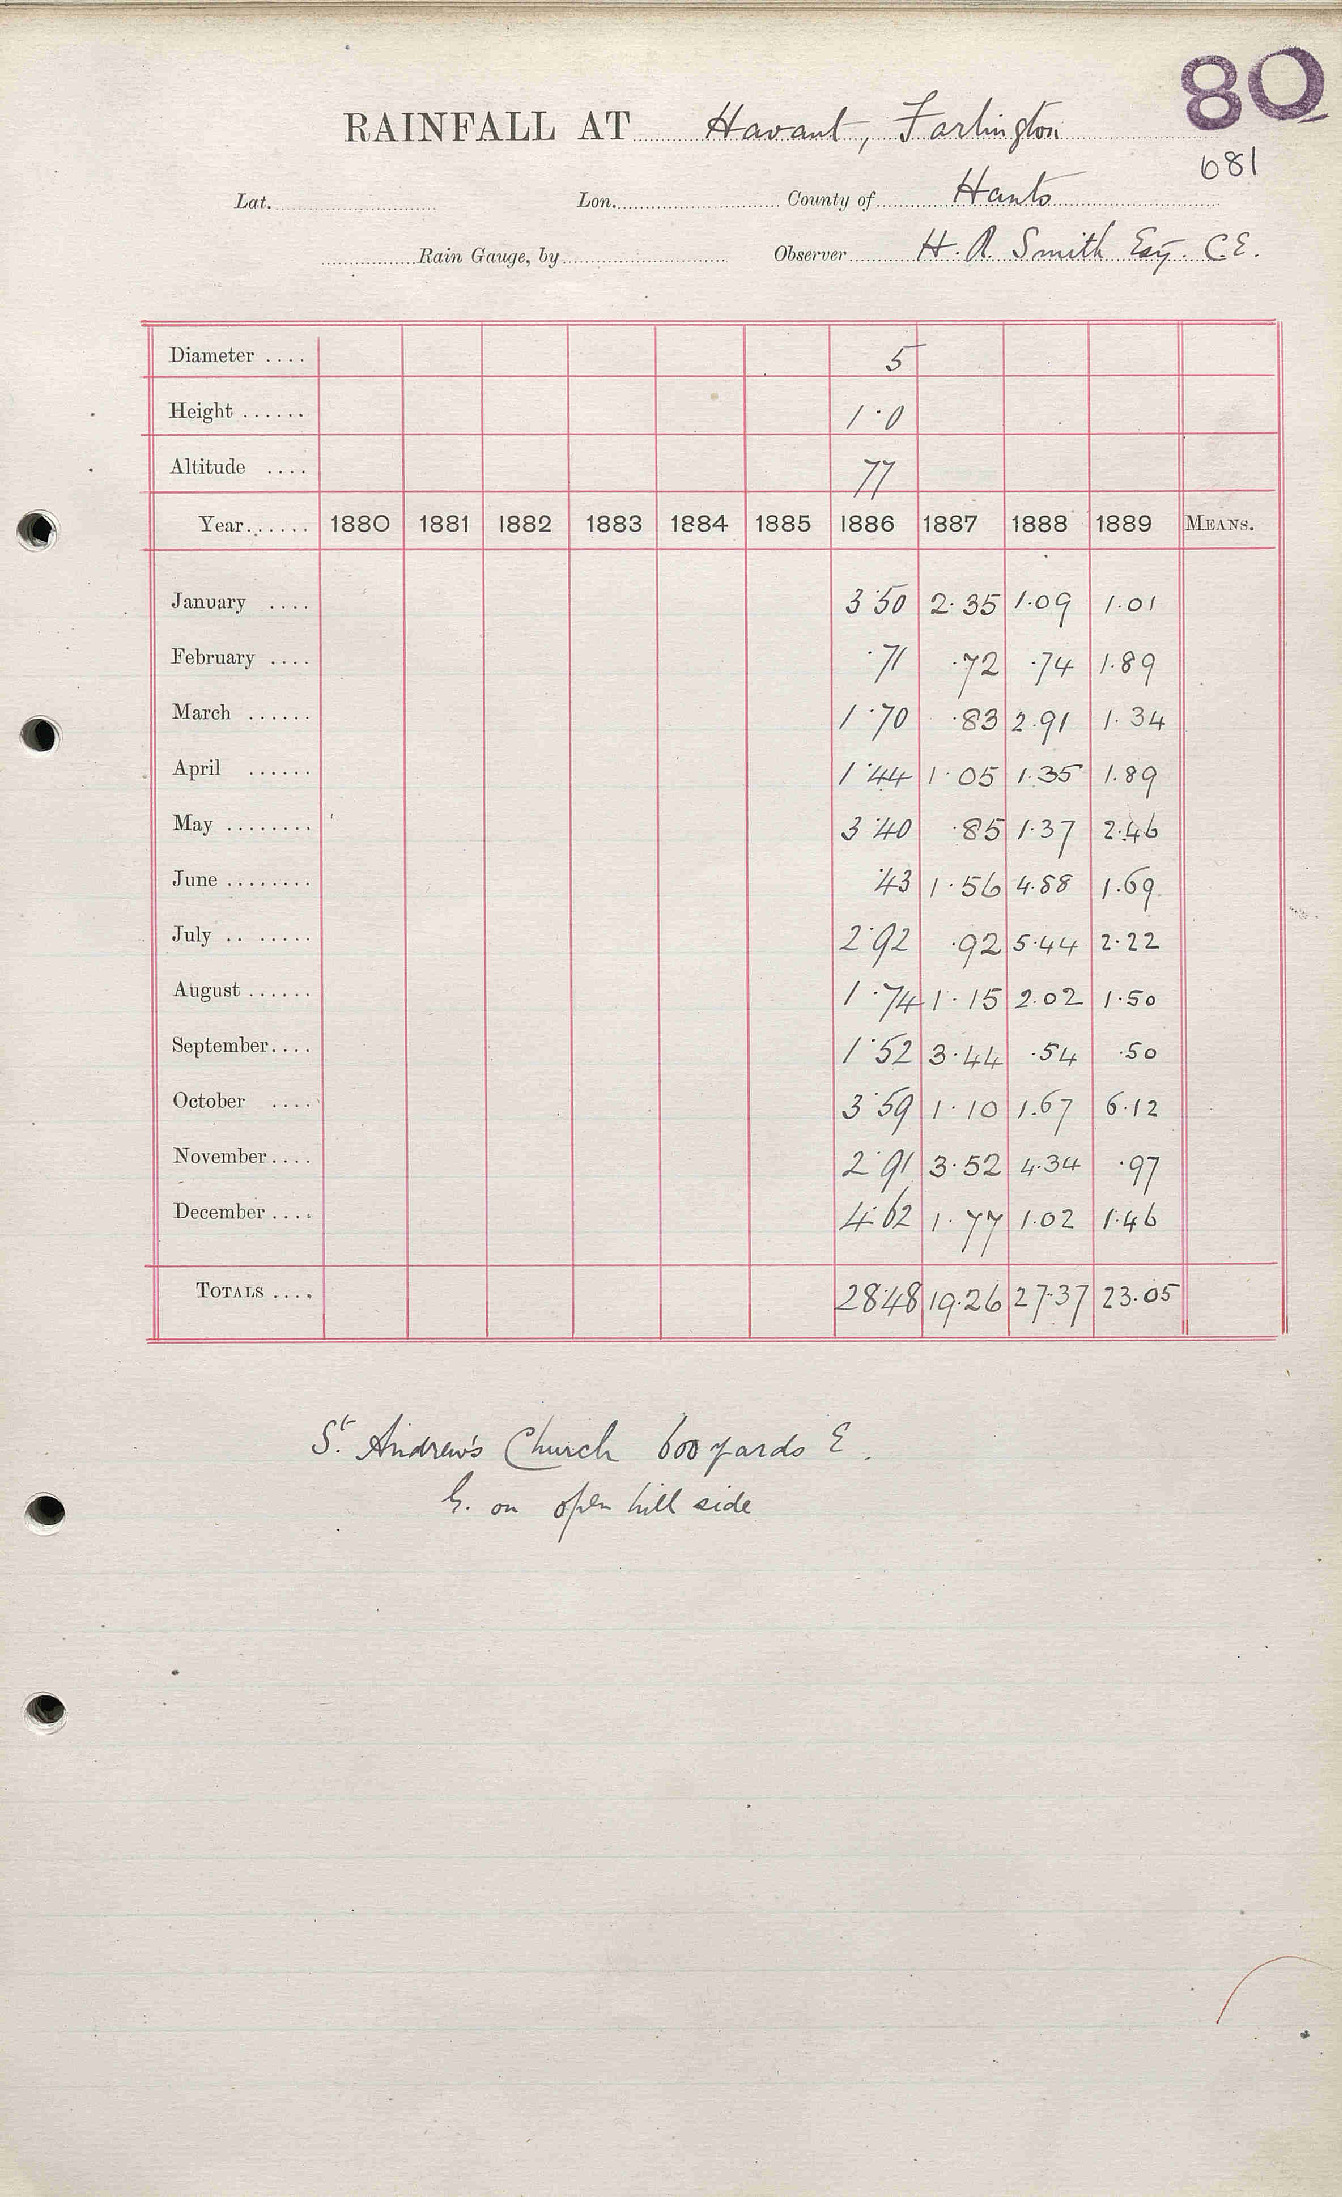 80
RAINFALL AT Havant, Farlington
681
Lat. Lon. County of Hants
Rain Gauge, by Observer H. R. Smith Esq. C.E.
Diameter .... 5
Height ...... 1·0
Altitude .... 77
Year...... 1880 1881 1882 1883 1884 1885 1886 1887 1888 1889 MEANS.
January .... 3·50 2·35 1·09 1·01
February .... ·71 ·72 ·74 1·89
March ...... 1·70 ·83 2·91 1·34
April ...... 1·44 1·05 1·35 1·89
May ........ 3·40 ·85 1·37 2·46
June ........ ·43 1·56 4·88 1·69
July .. ...... 2·92 ·92 5·44 2·22
August ...... 1·74 1·15 2·02 1·50
September.... 1·52 3·44 ·54 ·50
October .... 3·59 1·10 1·67 6·12
November.... 2·91 3·52 4·34 ·97
December .... 4·62 1·77 1·02 1·46
TOTALS .... 28·48 19·26 27·37 23·05
St. Andrew's Church 600 yards E.
G. on open hill side